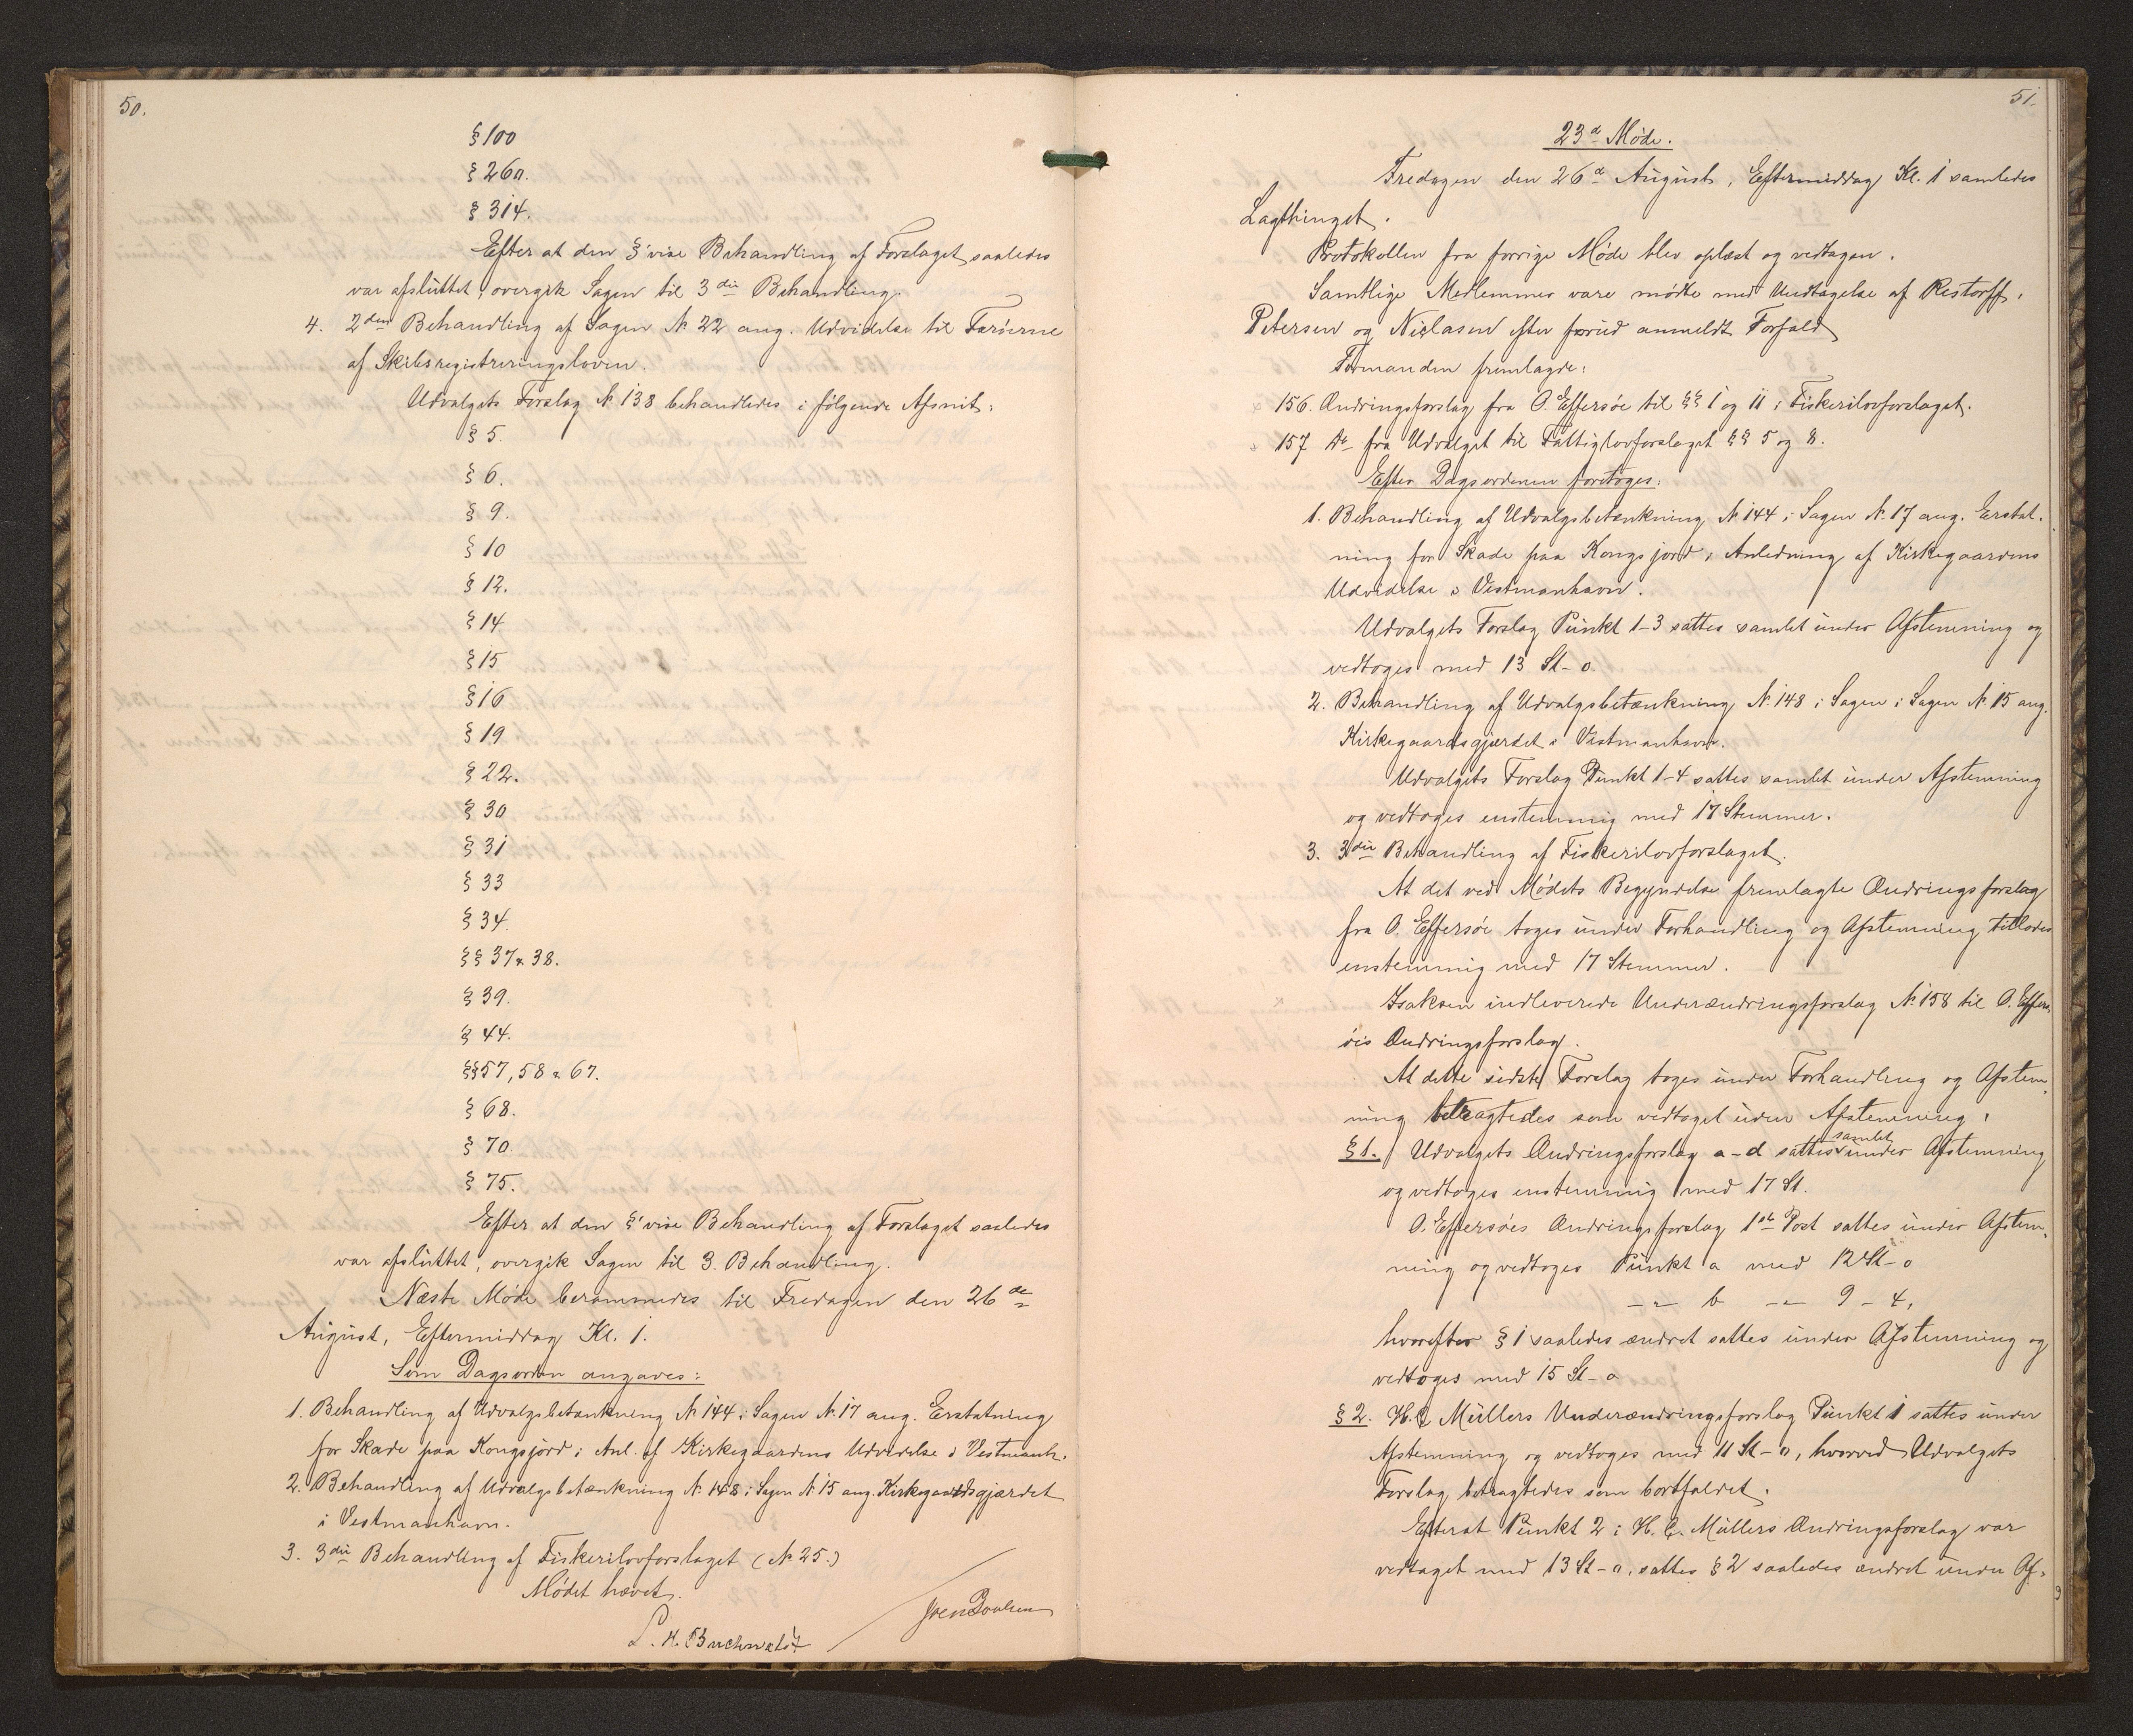 50.
§ 100
§ 260.
§ 314.
Efter at den §'vise Behandling af Forslaget saaledes
var afsluttet, overgik Sagen til 3die Behandling.
4. 2den Behandling af Sagen N. 22 ang. Udvidelse til Færøerne
af Skibsregistreringsloven.
Udvalgets Forslag N. 138 behandledes i følgende Afsnit:
§ 5.
§ 6.
§ 9.
§ 10
§ 12.
§ 14
§ 15
§ 16
§ 19
§ 22.
§ 30
§ 31
§ 33
§ 34.
§§ 37 & 38.
§ 39.
§ 44.
§§ 57, 58 & 67.
§ 68.
§ 70.
§ 75.
Efter at den §'vise Behandling af Forslaget saaledes
var afsluttet, overgik Sagen til 3. Behandling.
Næste Møde berammedes til Fredagen den 26de
August, Eftermiddag Kl. 1.
Som Dagsorden angaves:
1. Behandling af Udvalgsbetænkning N. 144 i Sagen N. 17 ang. Erstatning
for Skade paa Kongsjord i Anl. af Kirkegaardens Udvidelse i Vestmanh.
2. Behandling af Udvalgsbetænkning N. 148 i Sagen N. 15 ang. Kirkegaardsgjærdet
i Vestmanhavn.
3. 3die Behandling af Fiskerilovforslaget (N. 25.)
Mødet hævet.
Joen Poulsen
L. H. Buchwaldt
51.
23d Møde.
Fredagen den 26d August, Eftermiddag Kl. 1 samledes
Lagthinget.
Protokollen fra forrige Møde blev oplæst og vedtagen.
Samtlige Medlemmer vare mødte med Undtagelse af Restorff,
Petersen og Niclasen efter forud anmeldt Forfald
Formanden fremlagde:
156. Ændringsforslag fra O. Effersøe til §§ 1 og 11 i Fiskerilovforslaget.
157 Do fra Udvalget til Fattiglovforslaget §§ 5 og 8.
Efter Dagsordenen foretoges:
1. Behandling af Udvalgsbetænkning N. 144 i Sagen N. 17 ang. Erstat-
ning for Skade paa Kongsjord i Anledning af Kirkegaardens
Udvidelse i Vestmanhavn.
Udvalgets Forslag Punkt 1-3 sattes samlet under Afstemning og
vedtoges med 13 St-0.
2. Behandling af Udvalgsbetænkning N. 148 i Sagen i Sagen N. 15 ang.
Kirkegaardsgjærdet i Vestmanhavn.
Udvalgets Forslag Punkt 1-4 sattes samlet under Afstemning
og vedtoges enstemmig med 17 Stemmer.
3. 3die Behandling af Fiskerilovforslaget.
At det ved Mødets Begyndelse fremlagte Ændringsforslag
fra O. Effersøe toges under Forhandling og Afstemning tillodes
enstemmig med 17 Stemmer.
Isaksen indleverede Underændringsforslag N. 158 til O. Effers-
øes Ændringsforslag.
At dette sidste Forslag toges under Forhandling og Afstem-
ning betragtedes som vedtaget uden Afstemning.
§ 1. Udvalgets Ændringsforslag a-d sattes samlet under Afstemning
og vedtoges enstemmig med 17 St.
O. Effersøes Ændringsforslag 1ste Post sattes under Afstem-
ning og vedtoges Punkt a med 12 St-0
-"- b -"- 9-4,
hvorefter § 1 saaledes ændret sattes under Afstemning og
vedtoges med 15 St-0
§ 2. H. C. Müllers Underændringsforslag Punkt 1 sattes under
Afstemning og vedtoges med 11 St-0, hvorved Udvalgets
Forslag betragtedes som bortfaldet.
Efterat Punkt 2 i H. C. Müllers Ændringsforslag var
vedtaget med 13 St-0, sattes § 2 saaledes ændret under Af-